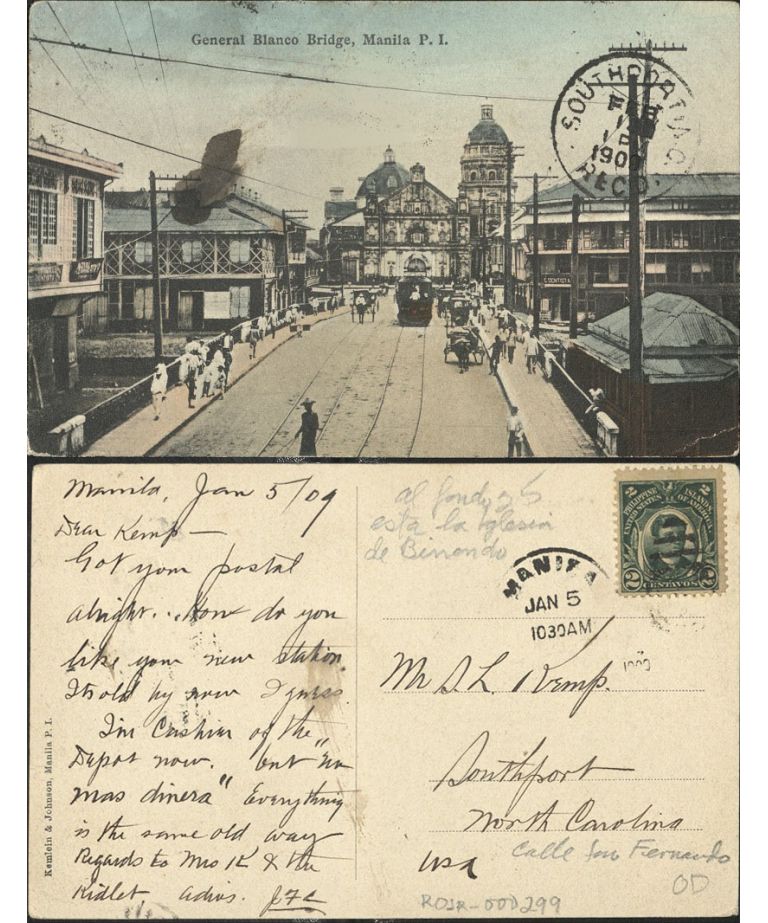 General Blanco Bridge, Manila P. I.
SOUTHPORT, N.C.
FEB
1909
REC'D.
DENTISTA
Manila, Jan 5/09
Dear Kemp—
Got your postal
alright. How do you
like your new station.
Its old by now I guess.
I'm Cashier of the
Depot now. but "no
mas dinera" Everything
is the same old way
Regards to Mrs K & the
Kidlet, adios. JFC
Kemlein & Johnson, Manila P. I.
al fondo
esta la Iglesia
de Binondo
MANILA
JAN 5
1030AM
1909
2 PHILIPPINE ISLANDS 2
UNITED STATES OF AMERICA
2 CENTAVOS 2
Mr S. L. Kemp.
Southport
North Carolina
USA
Calle San Fernando
OD
ROJR-OOD299